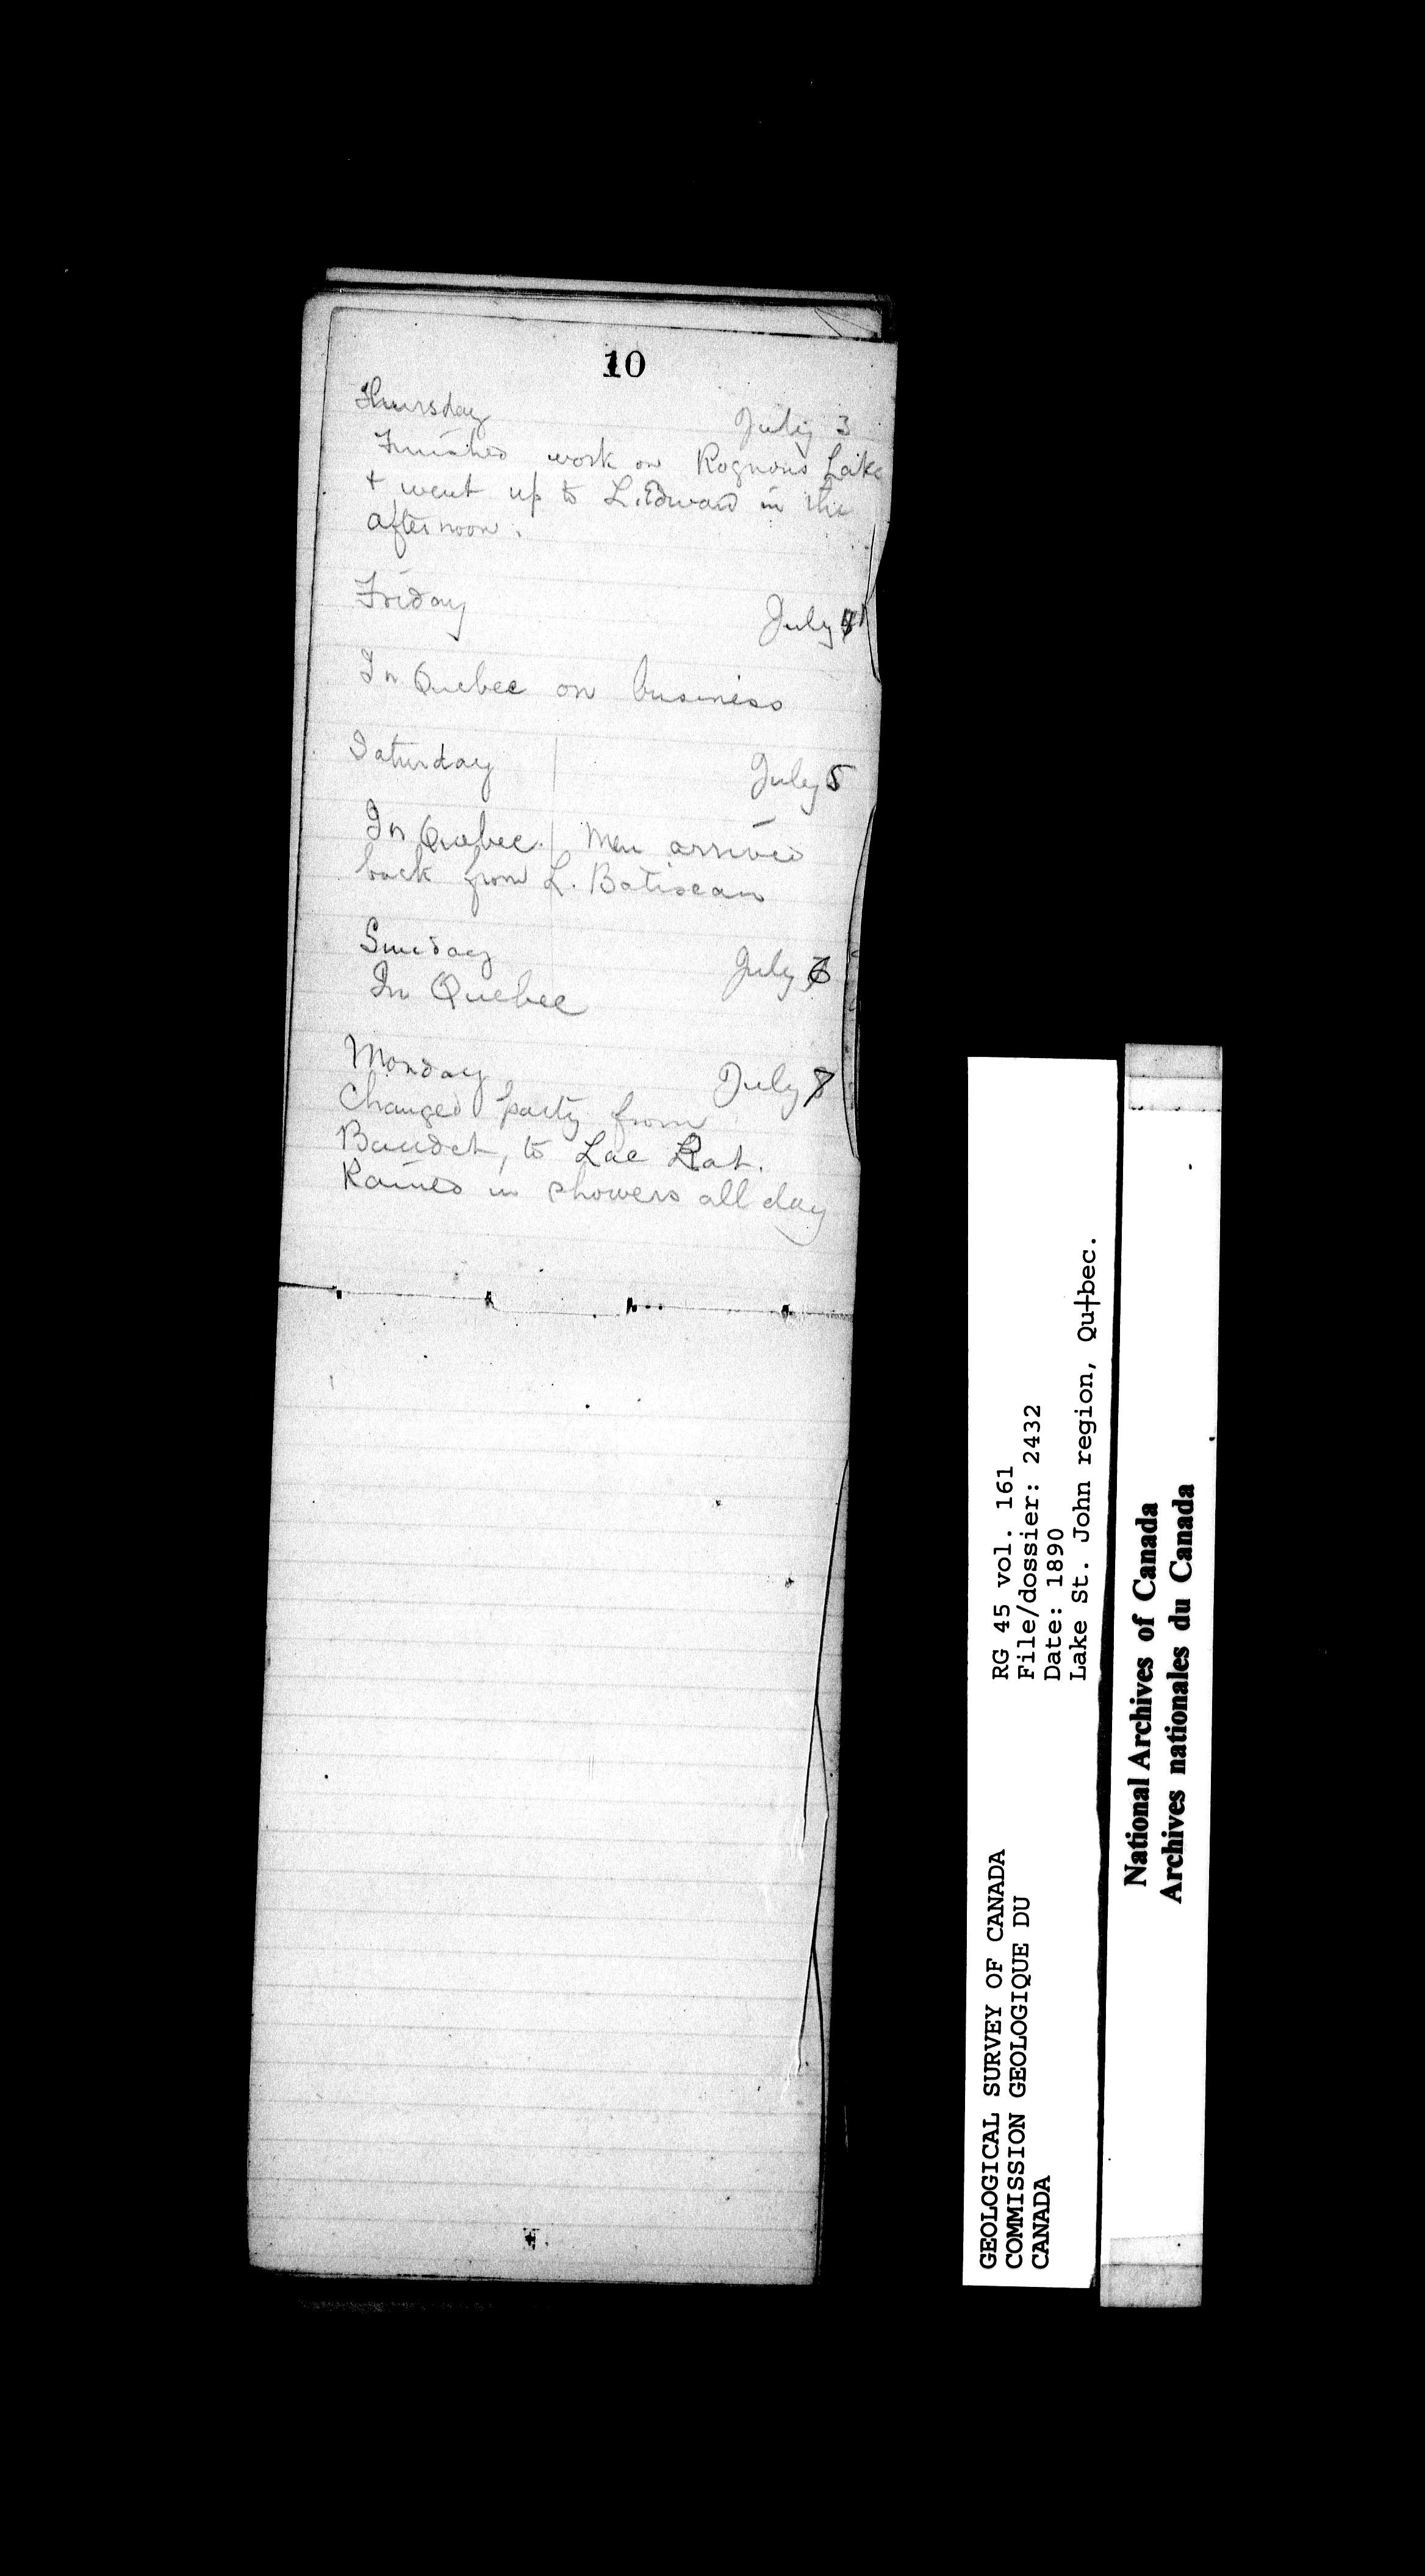 10
Thursday July 3
Finished work on Rognons Lake
+ went up to L. Edward in the
afternoon.
Friday July 4
In Quebec on business
Saturday July 5
In Quebec. Men arrived
back from L. Batiscan
Sunday July 6
In Quebec
Monday July 7
Changed party from
Baudet, to Lac Rat.
Rained in showers all day
GEOLOGICAL SURVEY OF CANADA
COMMISSION GEOLOGIQUE DU
CANADA
RG 45 vol. 161
File/dossier: 2432
Date: 1890
Lake St. John region, Qu┼bec.
National Archives of Canada
Archives nationales du Canada